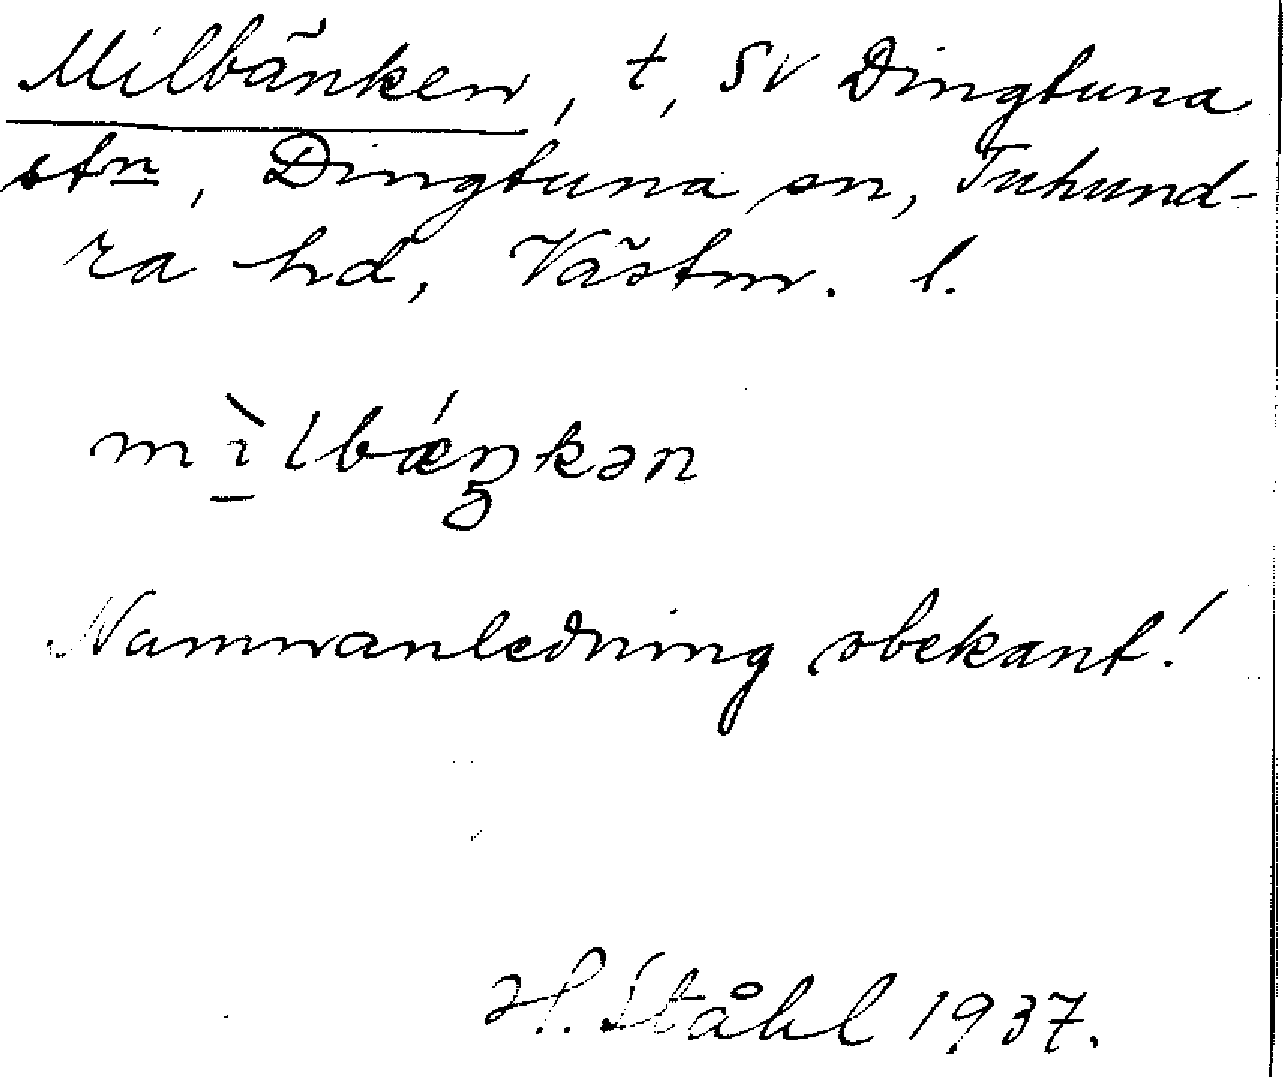 Milbänken, t, SV Dingtuna
stn, Dingtuna sn, Tuhund-
ra hd, Västm. l.
mìlbáŋkən
Namnanledning obekant!
H. Ståhl 1937.